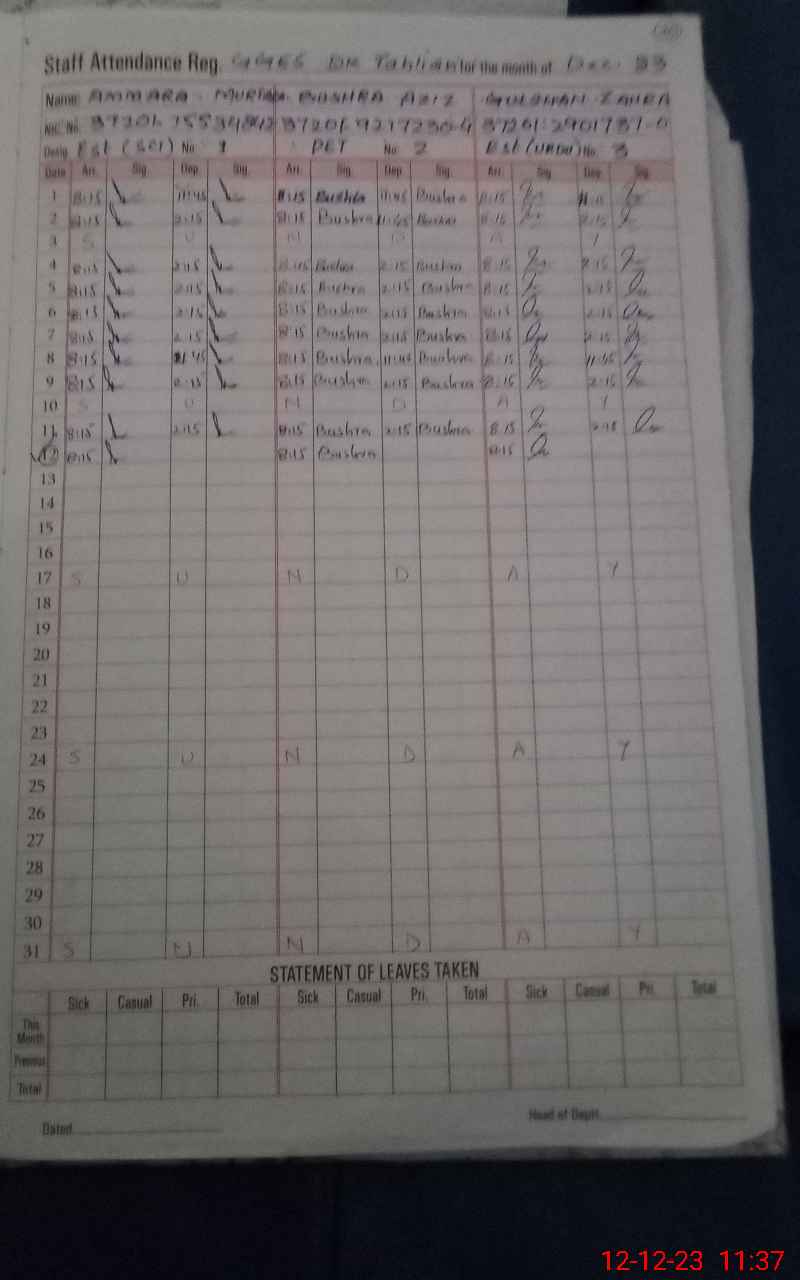 Staff Attendance Reg. for the month of Dec. 23
Name AMMARA BUSHRA AZIZ
NIC. No. 37201 37201 37201
Desig. Est (SCI) No. 1 PET No. 2 Est (URDU) No. 3
Date Arr. Sig. Dep. Sig. Arr. Sig. Dep. Sig. Arr. Sig. Dep. Sig.
1 8:15 11:45 8:15 Bushra 11:45 Bushra 8:15
2 8:15 2:15 8:15 Bushra Bushra 8:15 2:15
3 S U N D A Y
4 8:15 2:15 Bushra 2:15 Bushra 8:15 2:15
5 8:15 2:15 8:15 Bushra 2:15 Bushra 8:15 2:15
6 8:15 2:15 8:15 Bushra 2:15 Bushra 8:15 2:15
7 8:15 2:15 8:15 Bushra 2:15 Bushra 8:15 2:15
8 8:15 8:15 Bushra 11:45 Bushra 8:15 11:45
9 8:15 2:15 8:15 Bushra 2:15 Bushra 8:15 2:15
10 S U N D A Y
11 8:15 2:15 8:15 Bushra 2:15 Bushra 8:15 2:15
12 8:15 8:15 Bushra 8:15
13
14
15
16
17 S U N D A Y
18
19
20
21
22
23
24 S U N D A Y
25
26
27
28
29
30
31 S U N D A Y
STATEMENT OF LEAVES TAKEN
Sick Casual Pri. Total Sick Casual Pri. Total Sick Casual Pri. Total
This Month
Previous
Total
Dated Head of Deptt.
12-12-23 11:37